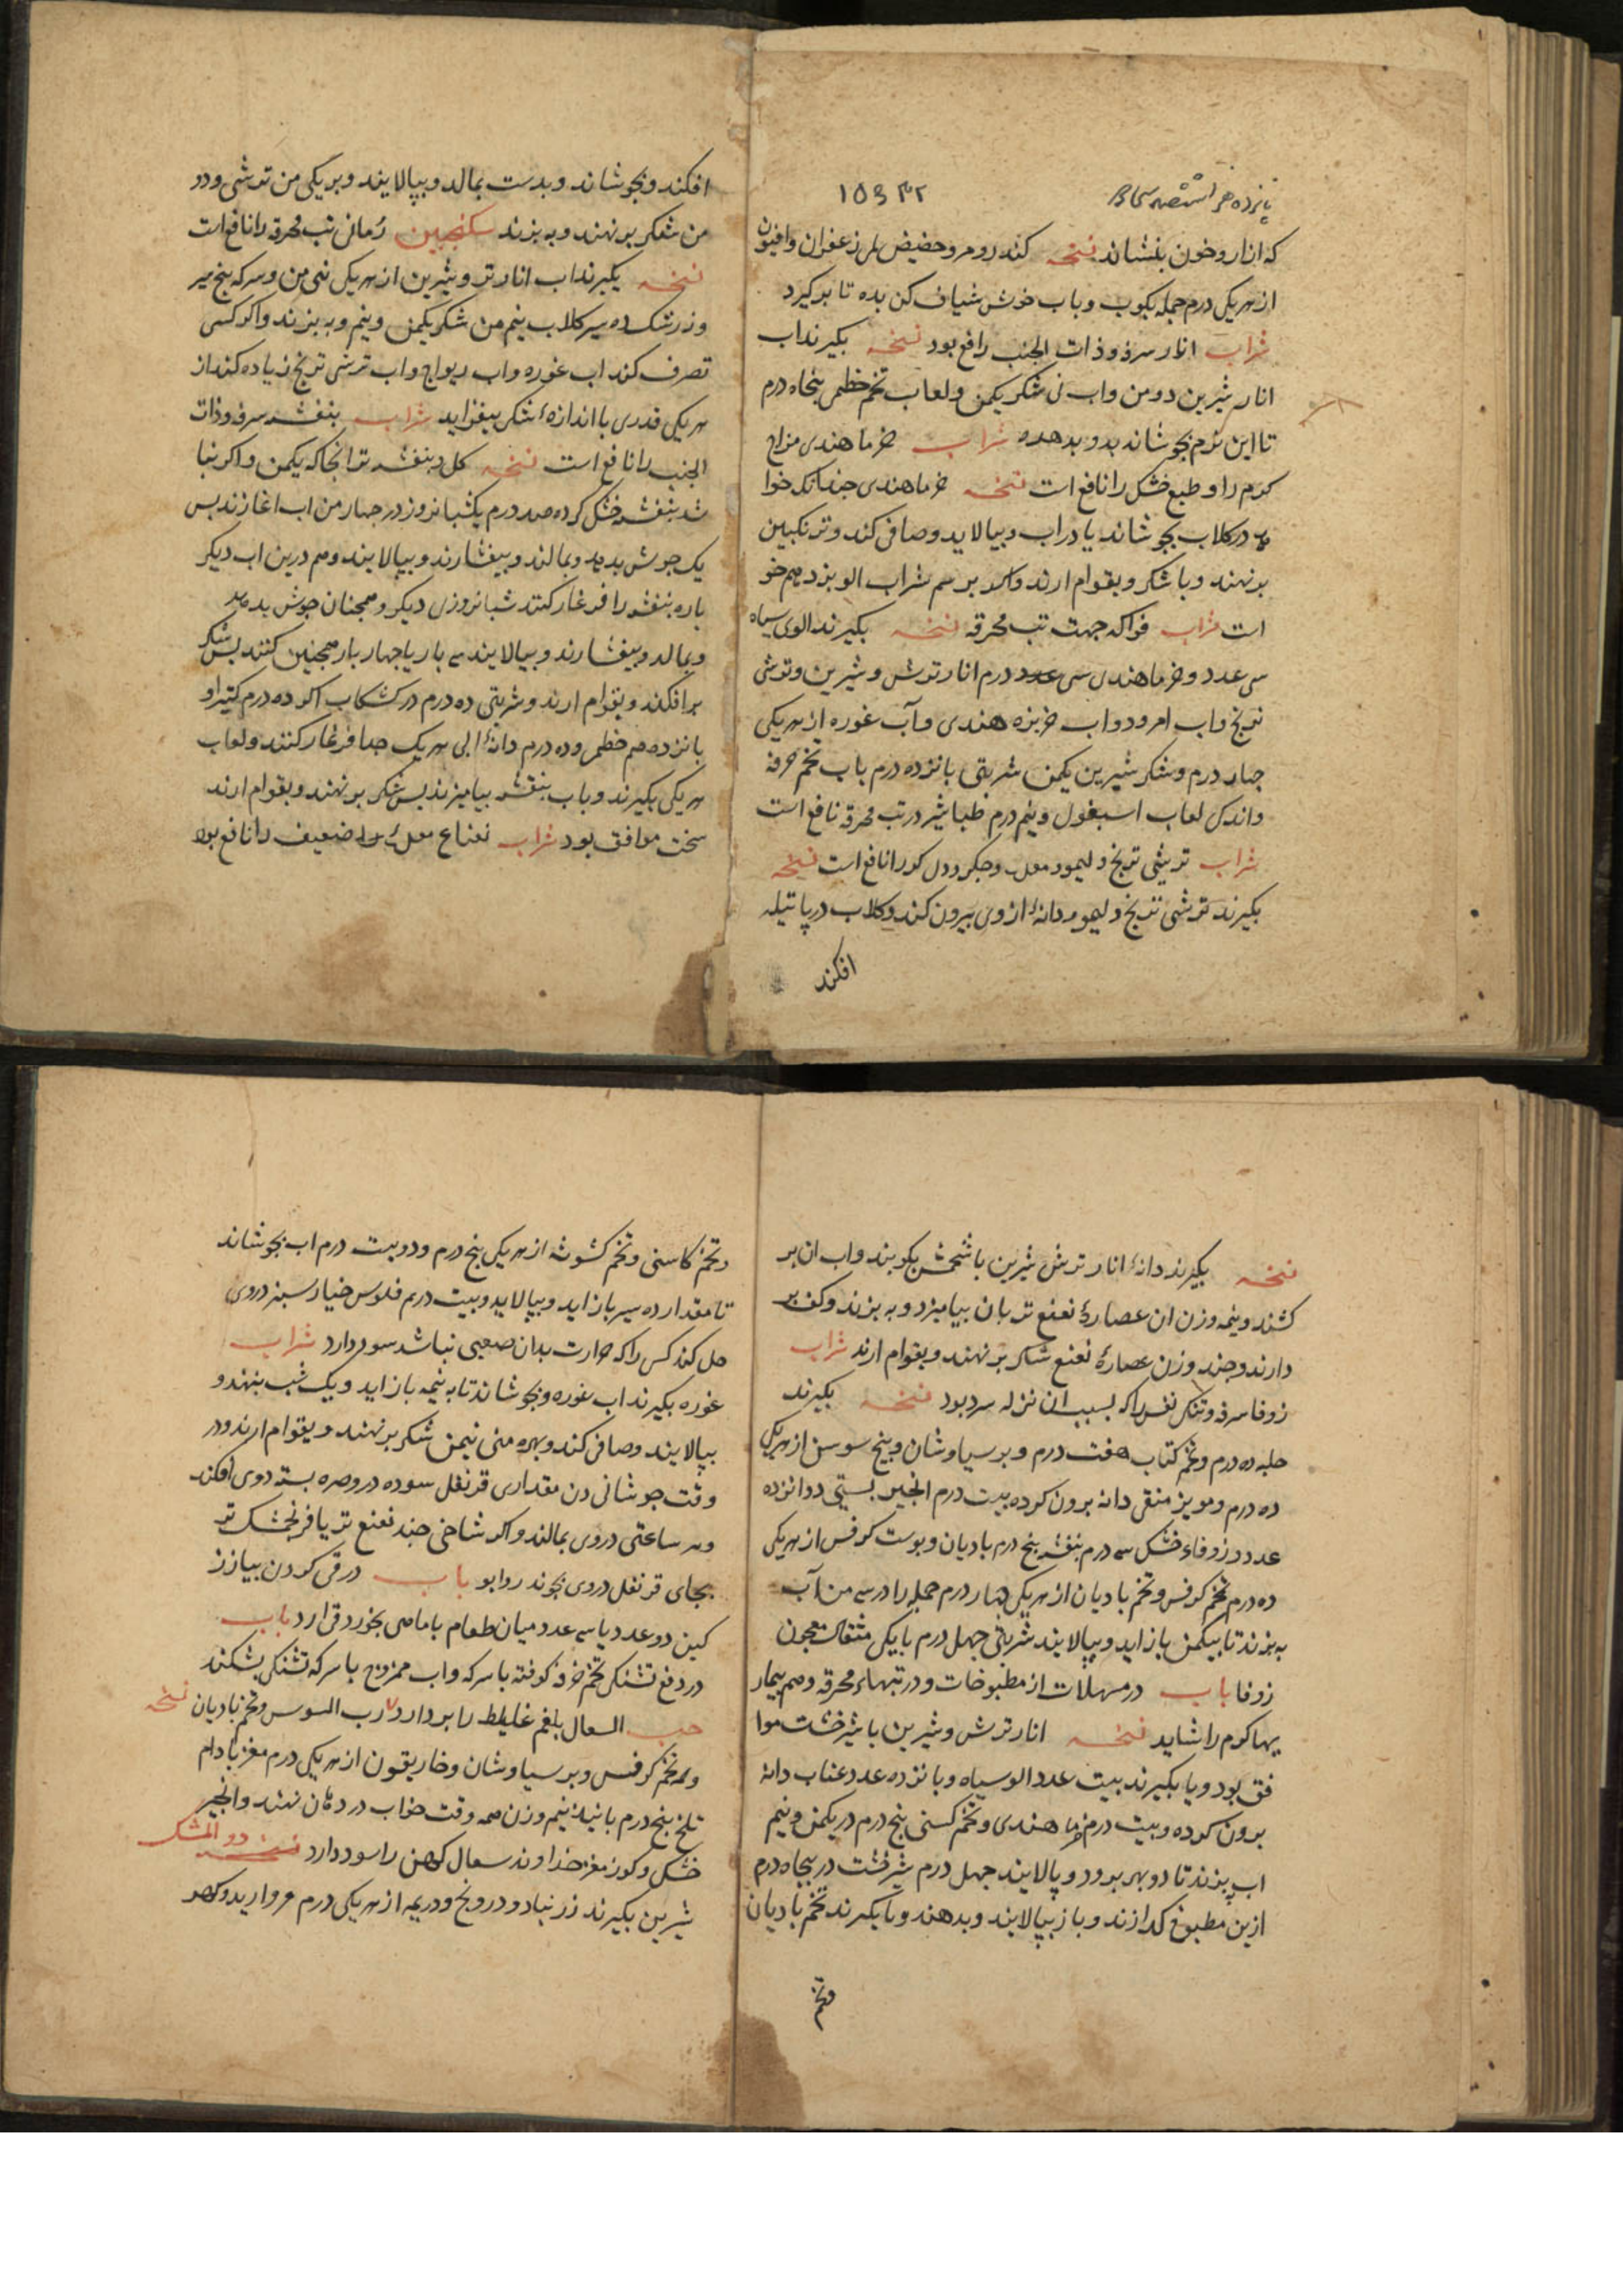 ۱۵۶۳۲
که ازار و خون بنشاند نسخه کندر و مر و حضیض زعفران و افیون
از هر یکی درم جمله بکوب و باب خوش شیاف کن بده تا برگیرد
شراب انار سرفه و ذات الجنب را فع بود نسخه بکیرند اب
انار شیرین دو من واب نی شکر یکمن و لعاب تخم خطمی پنجاه درم
تا این نرم بجوشاند بدو بدهده شراب خرما هندی مزاج
کرم را و طبع خشک را نافع است نسخه خرما هندی جندانک خوا
هد در کلاب بجوشاند یا در اب و بپالاید و صافی کند و ترنکبین
بر نهند و یا شکر و بقوام ارند و اکر بر سم شراب الو بزد هم خو
است شراب فواکه جهت تب محرقه نسخه بکیرند الوی سیاه
سی عدد و خرما هندی سی عدد درم انار ترش و شیرین و ترشی
ترنج و اب امرود و اب خربزه هندی و آب غوره از هر یکی
جهار درم و شکر شیرین یکمن شربتی بانزده درم باب تخم خرفه
واندکی لعاب اسبغول و نیم درم طباشیر در تب محرقه نافع است
شراب ترشی ترنج و لیمو و معده و جکر و دل کرم را نافع است نسخه
بکیرند ترشی ترنج و لیمو و دانهٔ از وی بیرون کند و کلاب در پاتیله
افکند
افکند و بجوشاند و بدست بمالد و بپالایند و بر یکی من ترشی و دو
من شکر بر نهند و به بزند سکنجبین رمانی تب محرقه را نافع است
نسخه بکیرند اب انار تر و شیرین از هر یکی نیم من و سرکه بنج سیر
و زرشک ده سیر کلاب نیم من شکر یکمن و نیم و به بزند و اکر کسی
تصرف کند اب غوره و اب ریواج و اب ترشی ترنج زیاده کند از
هر یکی قدری با اندازهٔ شکر بیفزاید شراب بنفشه سرفه و ذات
الجنب را نافع است نسخه کل بنفشه تر انجا که یکمن و اکر نیا
شد بنفشه خشک کرده صد درم یکشبانروز در جهار من اب اغازند بس
یک جوش بدهد و بمالند و بیفشارند و بپالایند و هم درین اب دیکر
باره بنفشه را فرغار کنند شبانروزی دیکر و همجنان جوش بدهد
و بمالد و بیفشارند و بپالایند سه بار یا جهار بار همجنین کنند بس شکر
برافکند و بقوام ارند و شربتی ده درم در کشکاب اکر ده درم کتیرا و
بانزده درم خطمی و ده درم دانهٔ ابی هر یک جدا فرغار کنند و لعاب
هر یکی بکیرند و باب بنفشه بیامیزند بس شکر بر نهند و بقوام ارند
سخت موافق بود شراب نعناع معدهٔ ضعیف را نافع بود
نسخه بکیرند دانهٔ انار ترش شیرین با شحمش بکوبند و اب ان بر
کشند و نیمه وزن ان عصارهٔ نعنع تر بان بیامیزد و به بزند و کف بر
دارند و جند وزن عصارهٔ نعنع شکر بر نهند و بقوام ارند شراب
زوفا سرفه و تنکی نفس را که بسبب ان نزله سرد بود نسخه بکیرند
حلبه ده درم و تخم کتاب هفت درم و برسیاوشان و بیخ سوسن از هر یکی
ده درم و مویز منقی دانه برون کرده بیست درم انجیر بستی دوانزده
عدد و زوفاء خشک سه درم بنفشه بنج درم بادیان و بوست کرفس از هر یکی
ده درم تخم کرفس و تخم بادیان از هر یکی جهار درم جمله را در سه من آب
به بزند تا بیکمن باز اید و بپالایند شربتی جهل درم با یکی مثقال معجون
زوفا باب در مسهلات از مطبوخات و در تبهاء محرقه و هم بیمار
یها کرم را شاید نسخه انار ترش و شیرین با شیرخشت موا
فق بود و یا بکیرند بیست عدد الو سیاه و بانزده عدد عناب دانه
برون کرده و بیست درم خرما هندی و تخم کسنی بنج درم در یکمن و نیم
اب بزند تا دو بهر برود و پالایند جهل درم شیرخشت در پنجاه درم
ازین مطبوخ کدازند و باز بپالایند و بدهند و یا بکیرند تخم بادیان
وتخم
وتخم کاسنی و تخم کشوث از هر یکی بنج درم و دویست درم اب بجوشاند
تا مقدار ده سیر باز اید و بپالاید و بیست درم فلوس خیار سبز در وی
حل کند کس را که حرارت بدان صعبی نباشد سود دارد شراب
غوره بکیرند اب غوره و بجوشاند تا به نیمه باز اید و یک شب بنهند و
بپالایند و صافی کند و بهره منی نیمن شکر بر نهند و بقوام ارند و در
وقت جوشانیدن مقداری قرنفل سوده در و صره بسته در وی افکند
و هر ساعتی در وی بمالند و اکر شاخی جند نعنع تر یا فرنجمشک تر
بجای قرنفل در وی بجوند روا بو باب در قی کردن بیاز نر
کین دو عدد یا سه عدد میان طعام با ماهی بخورد قی ارد باب
در دفع تشنکی تخم خرفه کوفته با سرکه و اب ممزوج با سرکه تشنکی بشکند
حب السعال بلغم غلیظ را بر دارد رب السوس و تخم بادیان نسخه
و تخم کرفس و برسیاوشان و غاریقون از هر یکی درم مغز بادام
تلخ بنج درم بانید نیم وزن همه وقت خواب در دهان نهند و انجیر
خشک و کوز مغز خداوند سعال کهن را سود دارد نسخه دو المشک
شیرین بکیرند زرنباد و درونج و دریمه از هر یکی درم مروارید و کهر